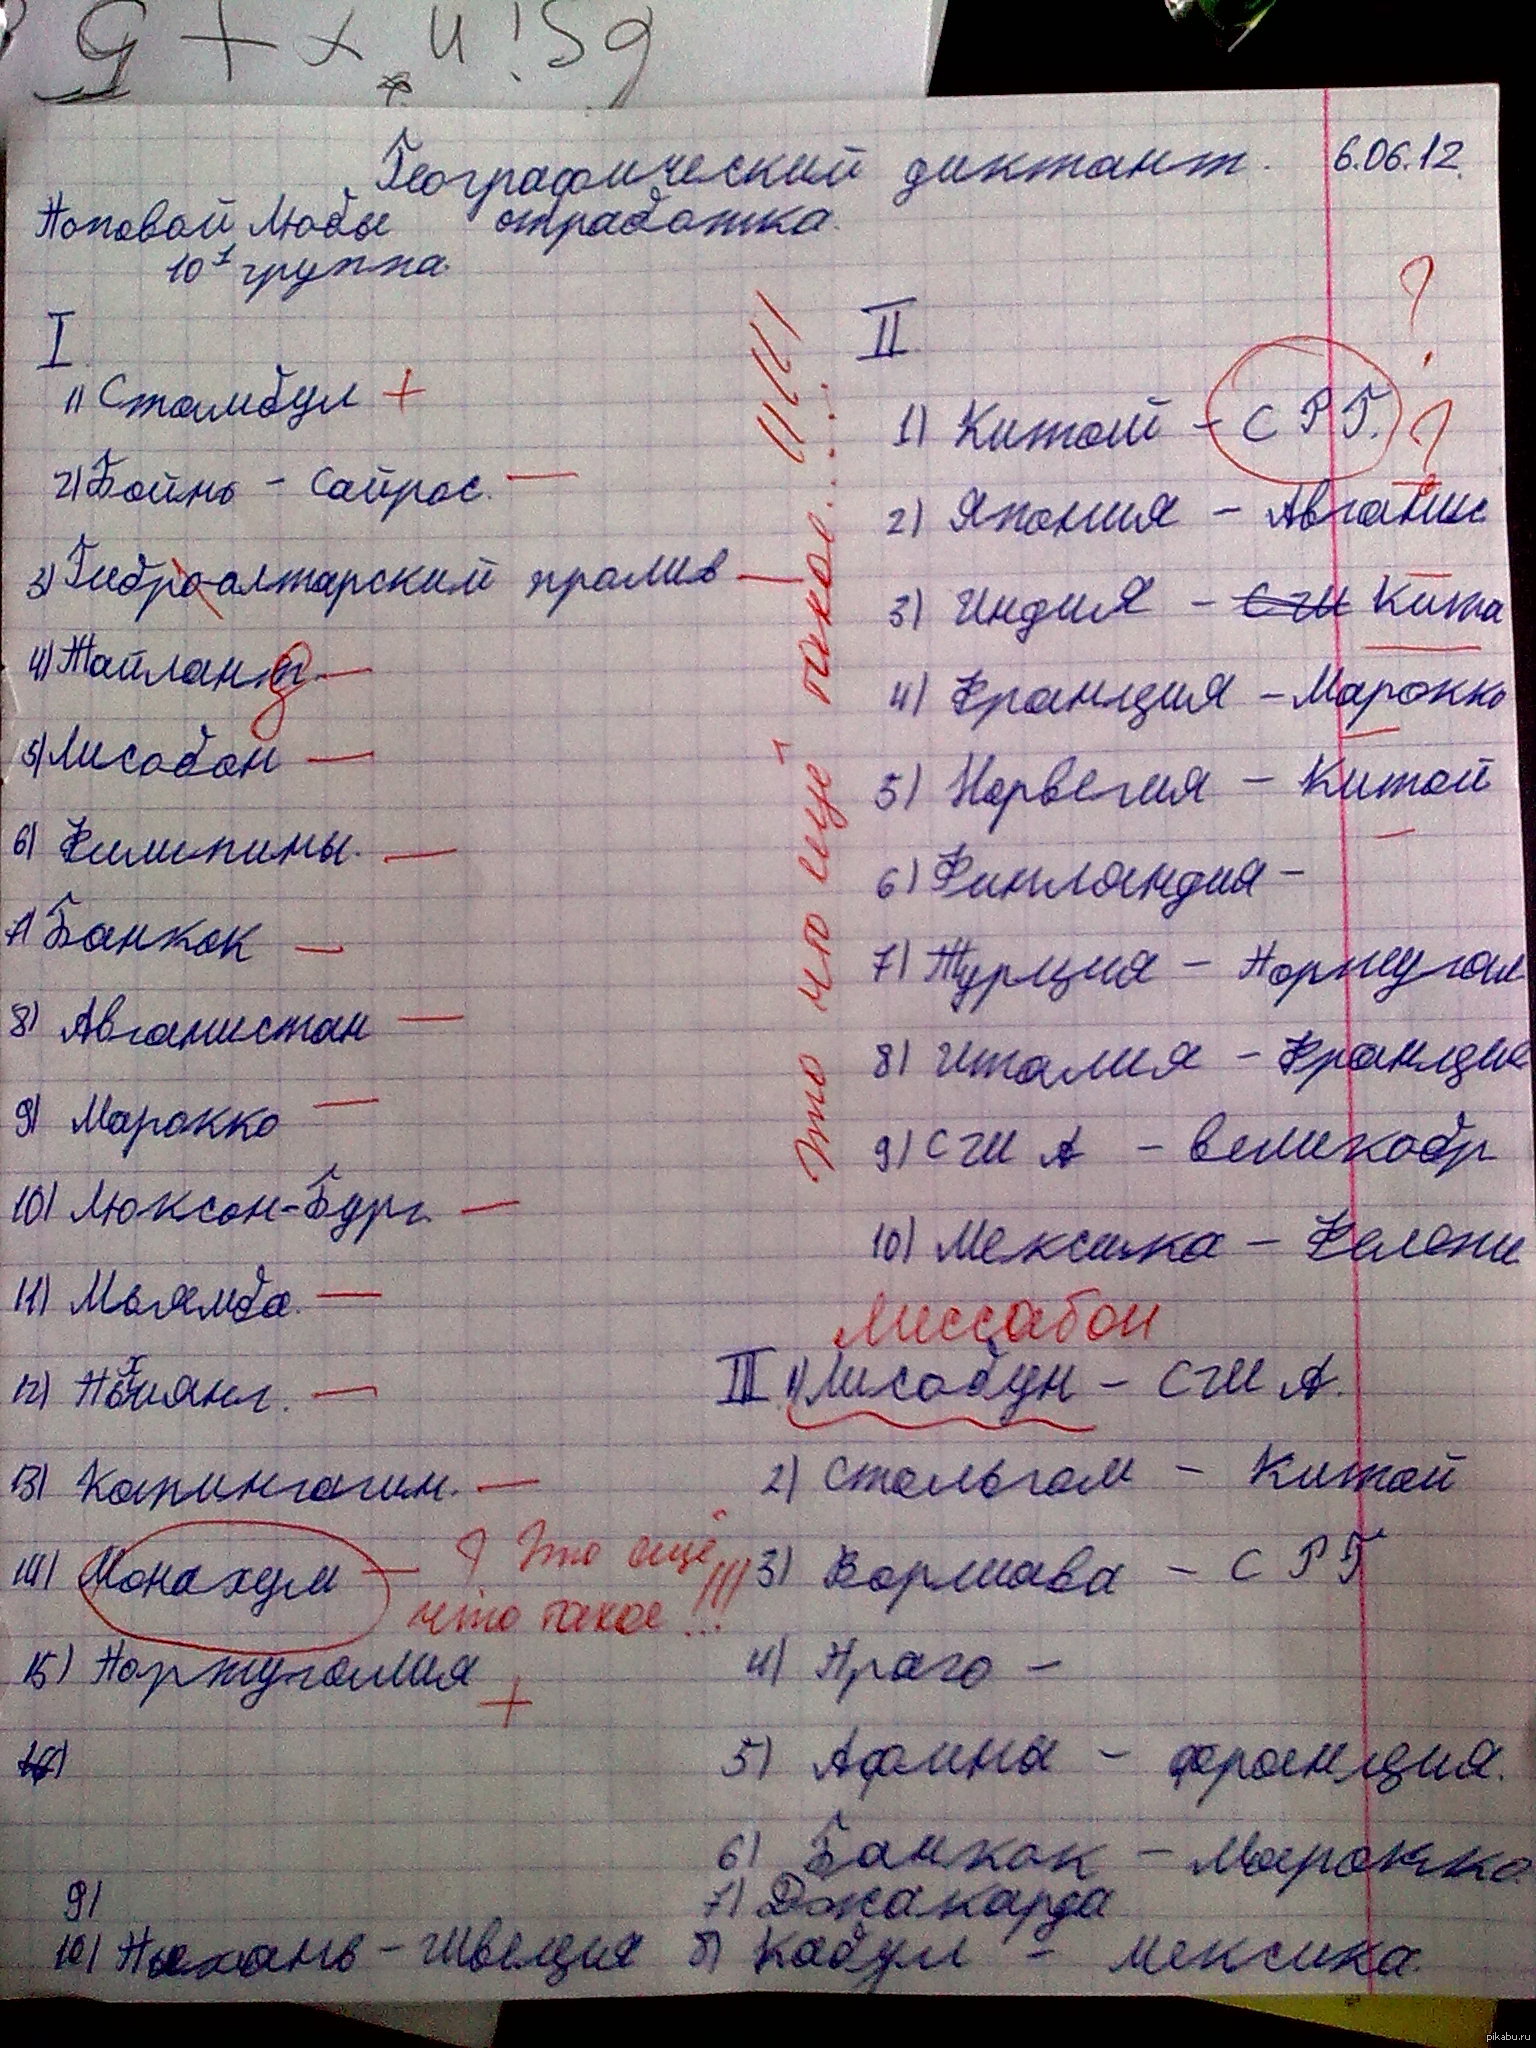 Географический диктант. 6.06.12.
Поповой Любы отработка.
10¹ группа.
I.
1) Стамбул +
2) Бойнь - Сайрос. —
3) Гибро-алтарский пролив —
4) Тайлант. —
5) Лисабон —
6) Филипины. —
7) Банкок —
8) Авганистан —
9) Марокко —
10) Люксон-Бург. —
11) Мьямба. —
12) —
13) Капингагин. —
14) Монахум — ? Это ещё
что такое!!!
15) Португалия +
16)
9)
10) - Швеция
Это что ещё такое...!!!!
II.
1) Китай - С Р Г. ? ?
2) Япония - Авганис
3) Индия - Кита
4) Франция - Марокко
5) Норвегия - Китай
6) Финляндия -
7) Турция - Португал
8) Италия - Франция
9) США - Великобр
10) Мексика -
Лиссабон
III. 1) Лисабун - США.
2) Стальгам - Китай
3) Варшава - С Р Г
4) Праго -
5) Афина - франция.
6) Банкок - Марокко.
7) Джакарда
8) Кабул - Мексика.
pikabu.ru